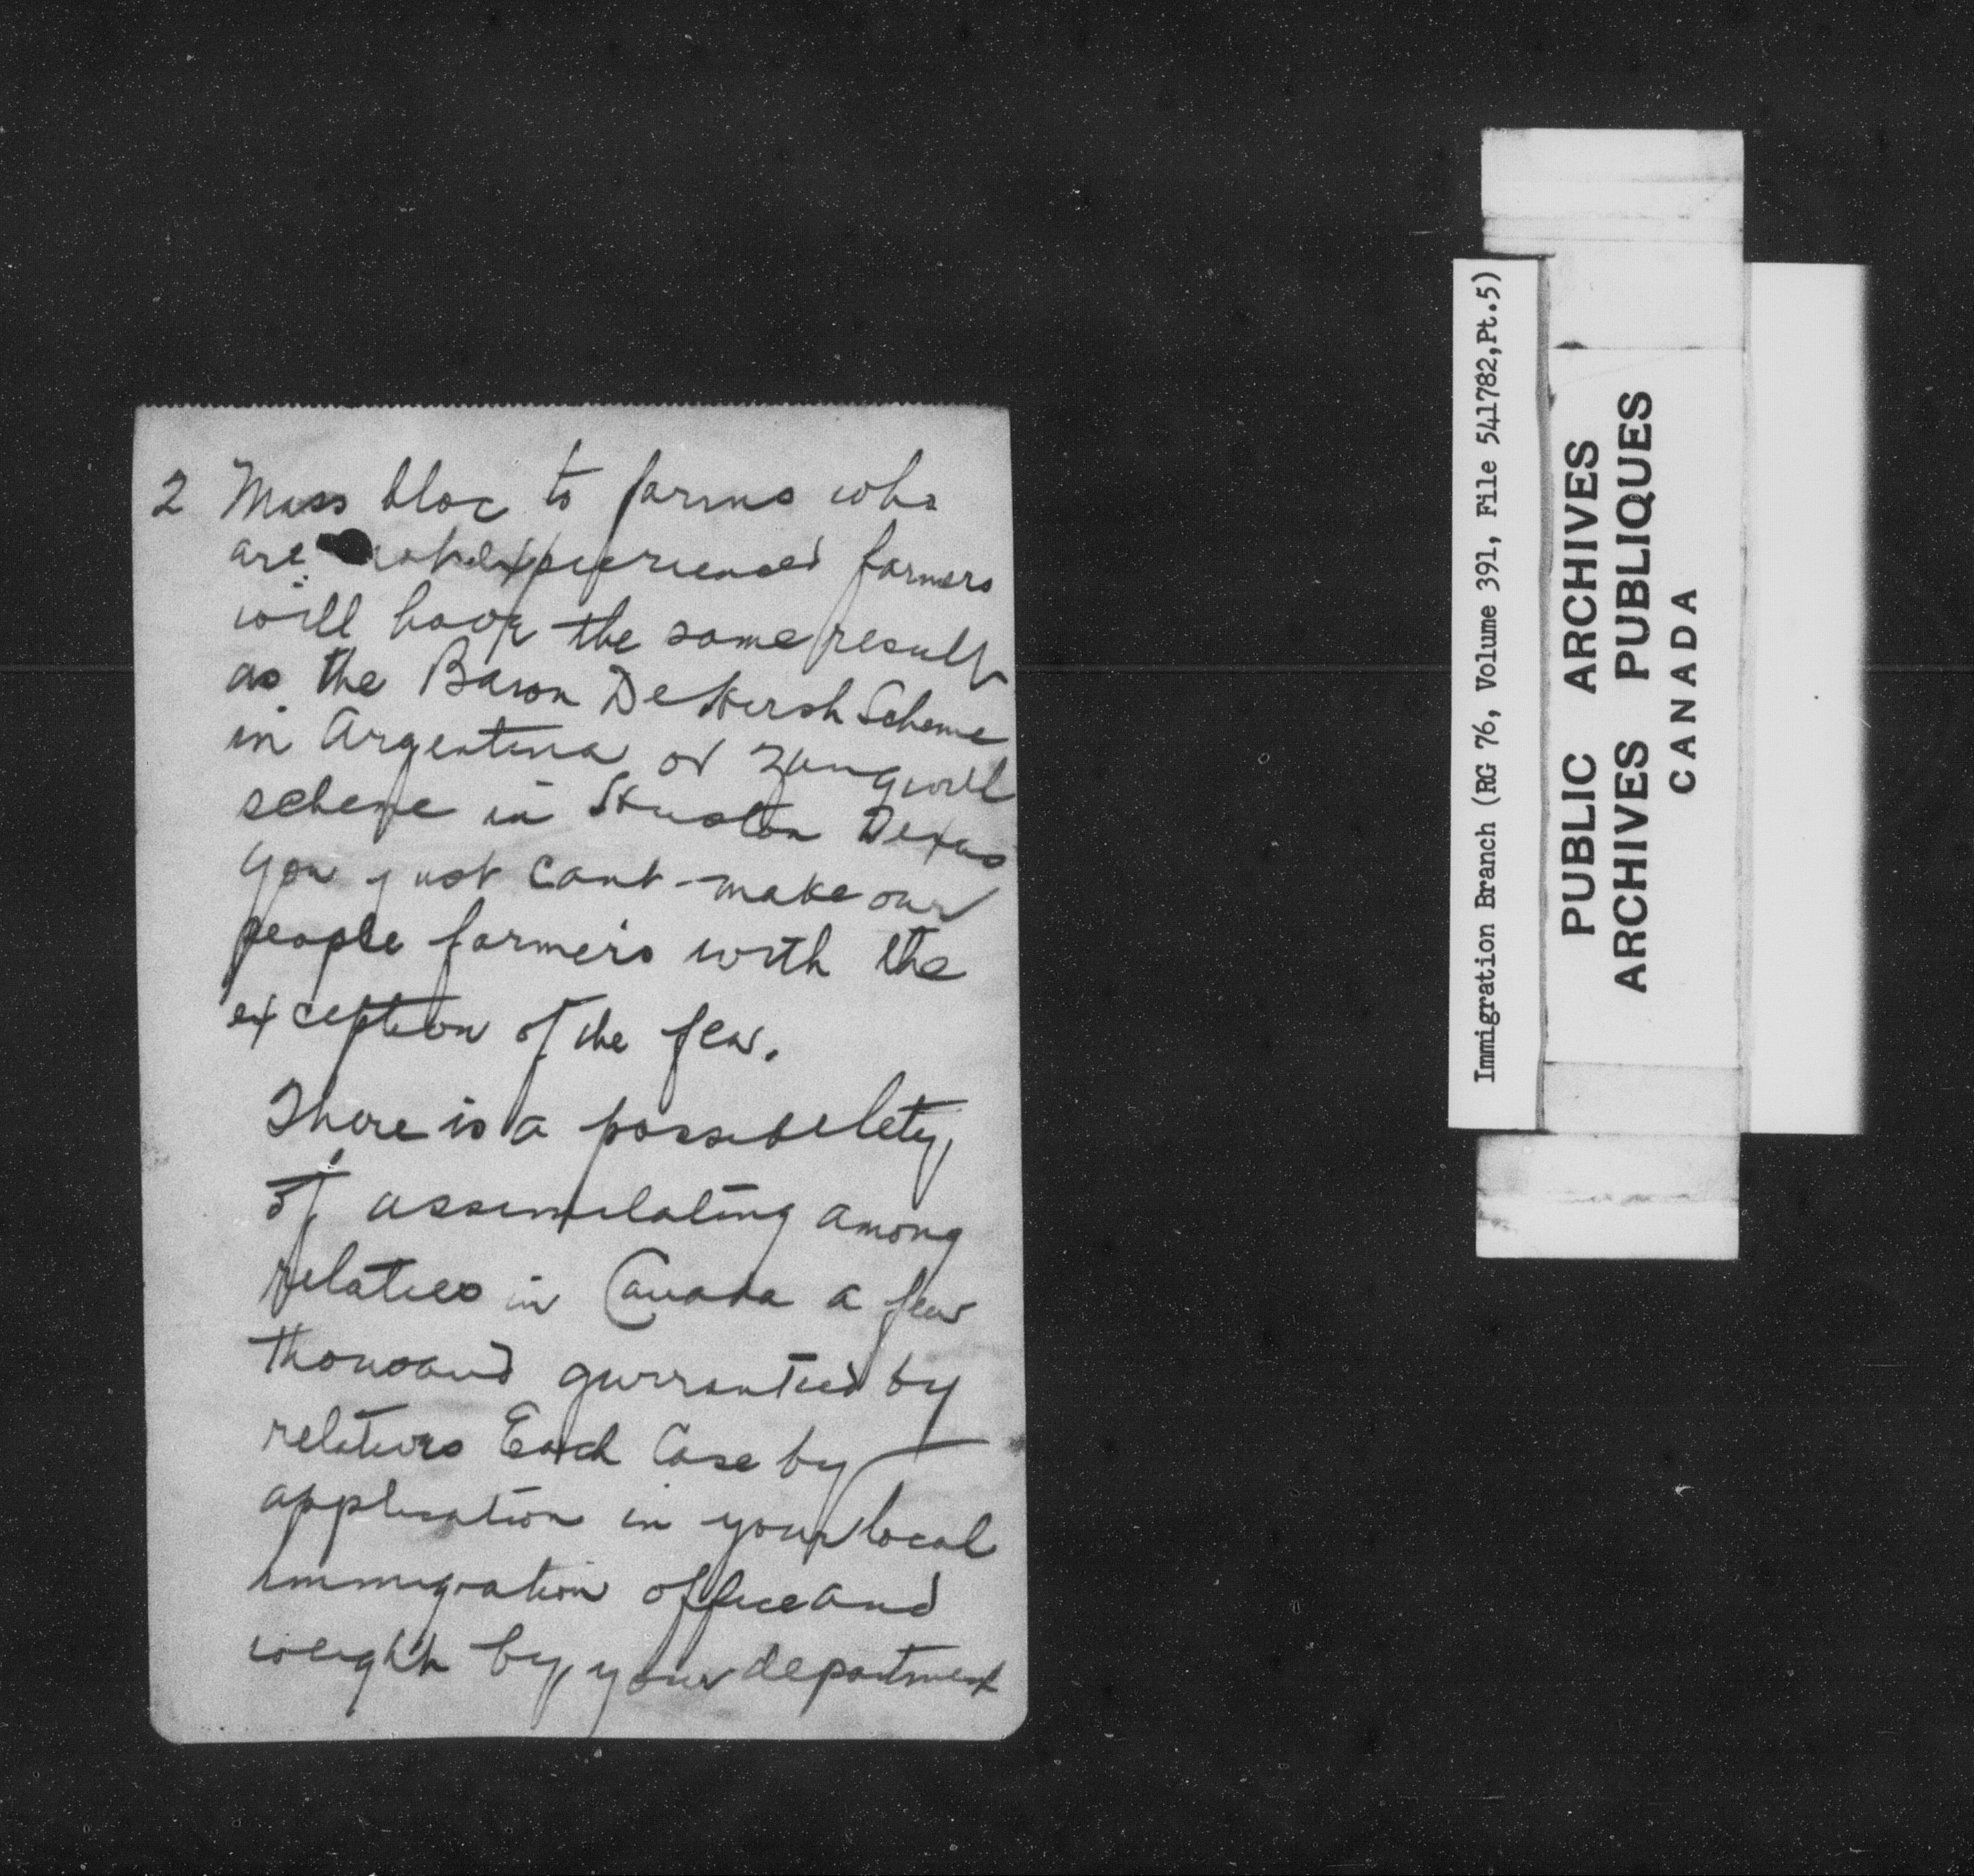 2 Mass bloc to farms who
are not experienced farmers
will have the same result
as the Baron DeHirsh Scheme
in Argentina or Zangwill
scheme in Huston Texas
You just cant make our
people farmers with the
exception of the few.
There is a possibelety,
of assimilating among
relaties in Canada a few
thousand gurranteed by
relatives Each Case by
application in your local
immigration office and
weighh by, your department
Immigration Branch (RG 76, Volume 391, File 541782,Pt.5)
PUBLIC ARCHIVES
ARCHIVES PUBLIQUES
CANADA